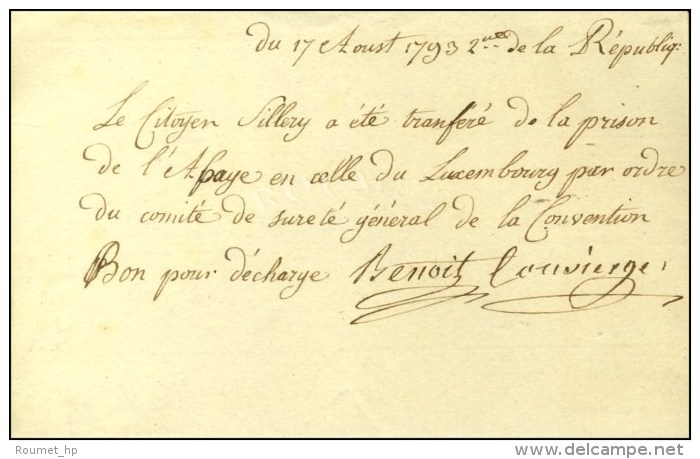 du 17 Aoust 1793 2me de la Républiq:
Le Citoyen Sillery a été tranferé de la prison
de l'Abaye en celle du Luxembourg par ordre
du comité de sureté général de la Convention
Bon pour décharge Benoit Concierge
Roumet_hp
delcampe.net